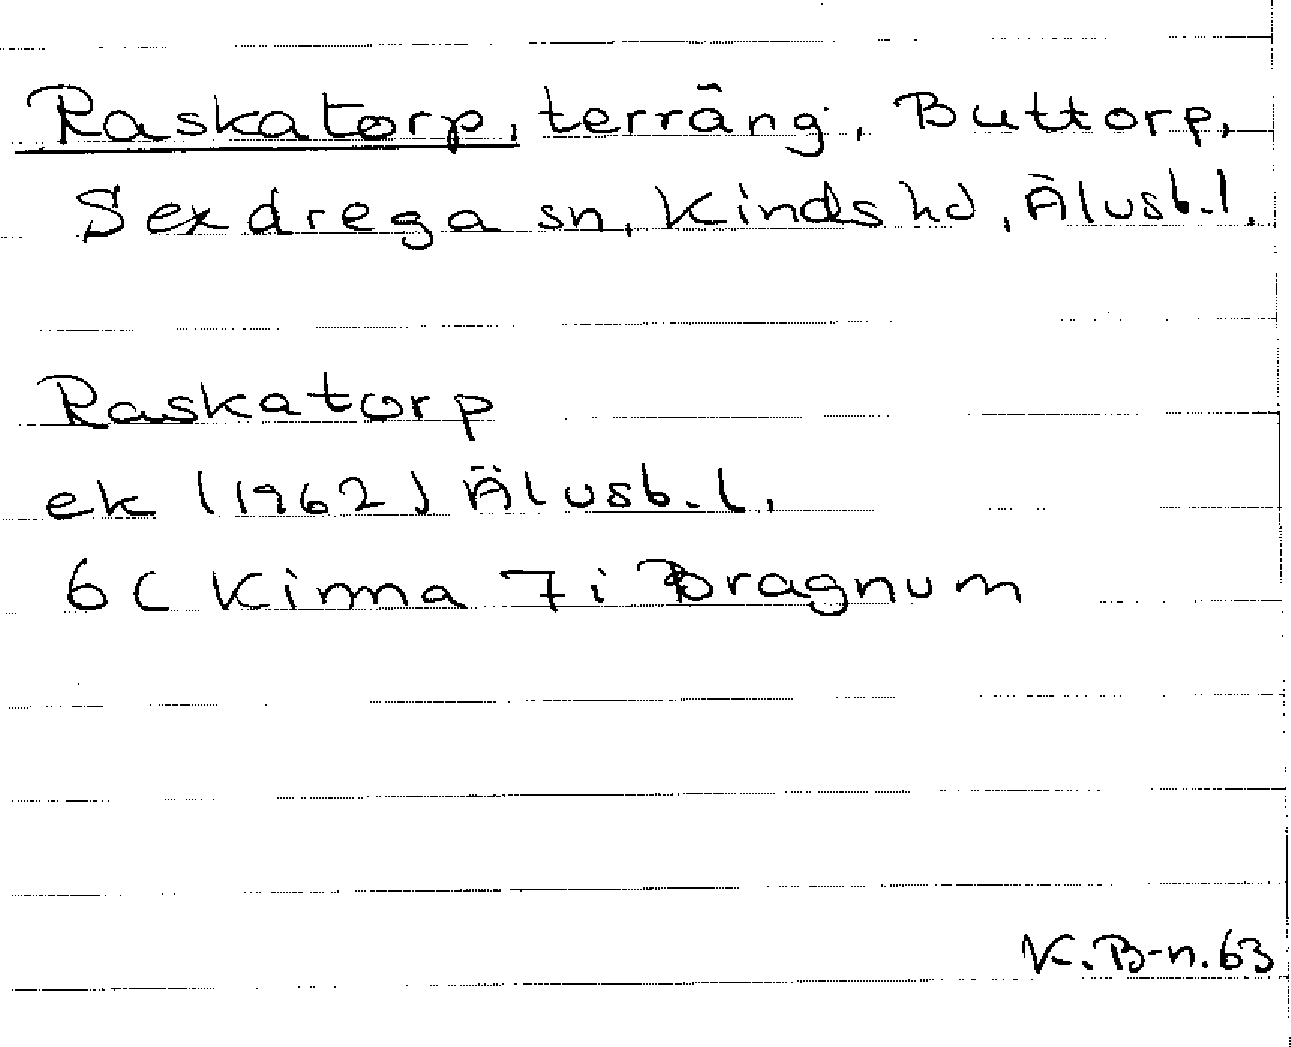 Raskatorp, terräng, Buttorp,
Sexdrega sn, Kinds hd, Älvsb.l.
Raskatorp
ek (1962) Älvsb.l.
6C Kinna 7i Bragnum
K.B-n.63